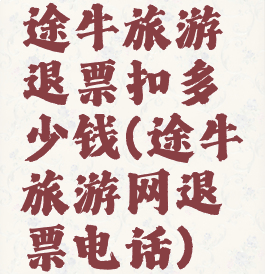 途牛旅游
退票扣多
少钱(途牛
旅游网退
票电话)